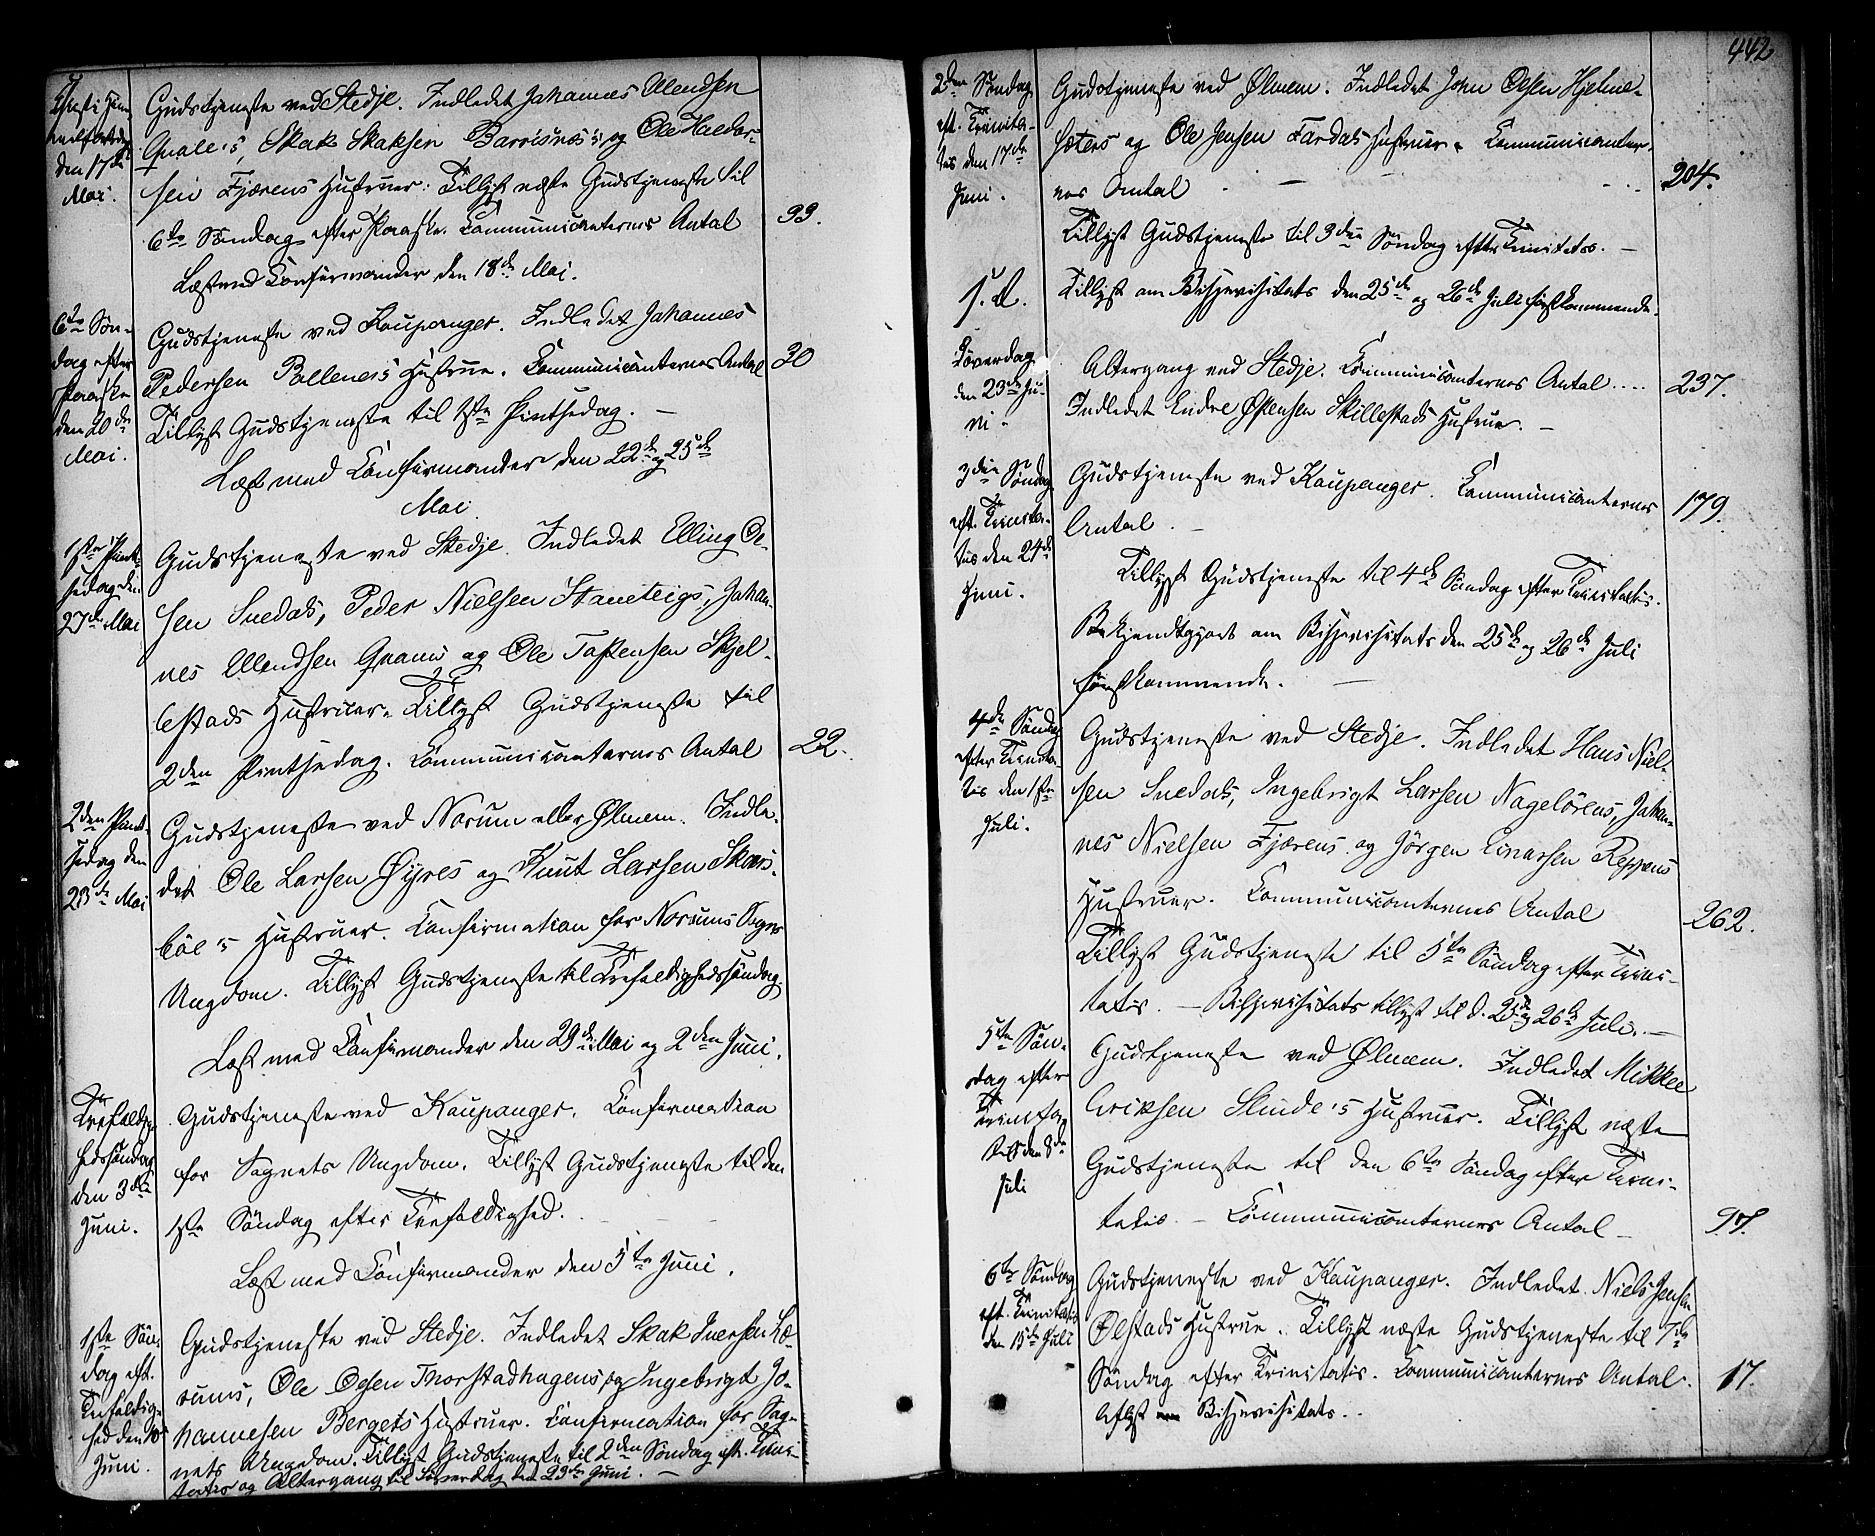 Christi Him-
melfartsdag
den 17de
Mai.
Gudstjeneste ved Stedje. Indledet Johannes Olendsen
Quale's, Skak Skaksen Barsnes's og Ole Haldor-
sen Fjærens Hustruer. Tillyst næste Gudstjeneste til
6te Söndag efter Paaske. Communicanternes Antal 99.
Læst med Confirmander den 18de Mai.
6te Sön-
dag efter
Paaske
den 20de
Mai.
Gudstjeneste ved Kaupanger. Indledet Johannes
Pedersen Ballenes's Hustrue. Communicanternes Antal 30
Tillyst Gudstjeneste til 1ste Pintsedag. —
Læst med Confirmander den 22de og 25de
Mai.
1ste Pint-
sedag den
27de Mai
Gudstjeneste ved Stedje. Indledet Elling Ol-
sen Snedals, Peder Nielsen Stanteigs, Johan-
nes Olendsen Gvams og Ole Torstensen Skjel-
lestads Hustruer. Tillyst Gudstjeneste til
2den Pintsedag. Communicanternes Antal 22.
2den Pint-
sedag den
28de Mai
Gudstjeneste ved Norum eller Ølmem. Indle-
det Ole Larsen Øyres og Knut Larsen Skaris-
böl's Hustruer. Confirmation for Norums Sogns
Ungdom. Tillyst Gudstjeneste til Trefoldighedssöndag.
Læst med Confirmander den 29de Mai og 2den Juni.
Trefoldig-
hedssöndag
den 3die
Juni.
Gudstjeneste ved Kaupanger. Confirmation
for Sognets Ungdom. Tillyst Gudstjeneste til den
1ste Söndag efter Trefoldighed.
Læst med Confirmander den 5te Juni.
1ste Sön-
dag eft.
Trefoldig-
hed den 10
Juni.
Gudstjeneste ved Stedje. Indledet Skak Iversen Læ-
rums, Ole Olsen Thorstadhagens, og Ingebrigt Jo-
hannesen Bergets Hustruer. Confirmation for Sog-
nets Ungdom. Tillyst Gudstjeneste til 2den Söndag eft. Trini-
tatis og Altergang til Löverdag den 23de Juni. —
442
2den Söndag
eft. Trinita-
tis den 17de
Juni.
Gudstjeneste ved Ølmem. Indledet John Olsen Hjelme-
sæters og Ole Jensen Fardals Hustruer. Communicanter-
nes Antal 204.
Tillyst Gudstjeneste til 3die Söndag efter Trinitatis. —
s. d.
Tillyst om Bispevisitats den 25de og 26de Juli förstkommende.
Löverdag
den 23de Ju-
ni.
Altergang ved Stedje. Communicanternes Antal .... 237.
Indledet Endre Østensen Skillestads Hustrue. —
3die Söndag
eft. Trinita-
tis den 24de
Juni.
Gudstjeneste ved Kaupanger. Communicanternes
Antal. 179.
Tillyst Gudstjeneste til 4de Söndag efter Trinitatis.
Bekjendtgjort om Bispevisitats den 25de og 26de Juli
förstkommende. —
4de Söndag
efter Trinita-
tis den 1ste
Juli.
Gudstjeneste ved Stedje. Indledet Hans Niel-
sen Snedals, Ingebrigt Larsen Nagelörens, Johan-
nes Nielsen Fjærens og Jörgen Einarsen Reppens
Hustruer. Communicanternes Antal 262.
Tillyst Gudstjeneste til 5te Söndag efter Trini-
tatis. — Bispevisitats tillyst til d. 25de og 26de Juli. —
5te Sön-
dag efter
Trinita-
tis den 8de
Juli
Gudstjeneste ved Ølmem. Indledet Mikkel
Eriksen Slinde's Hustrue. Tillyst næste
Gudstjeneste til den 6te Söndag efter Trini-
tatis. — Communicanternes Antal — 97.
6te Söndag
eft. Trinitatis
den 15de Juli
Gudstjeneste ved Kaupanger. Indledet Niels Jensen
Ølstads Hustrue. Tillyst næste Gudstjeneste til 7de
Söndag efter Trinitatis. Communicanternes Antal. 17.
Aflyst Bispevisitats.